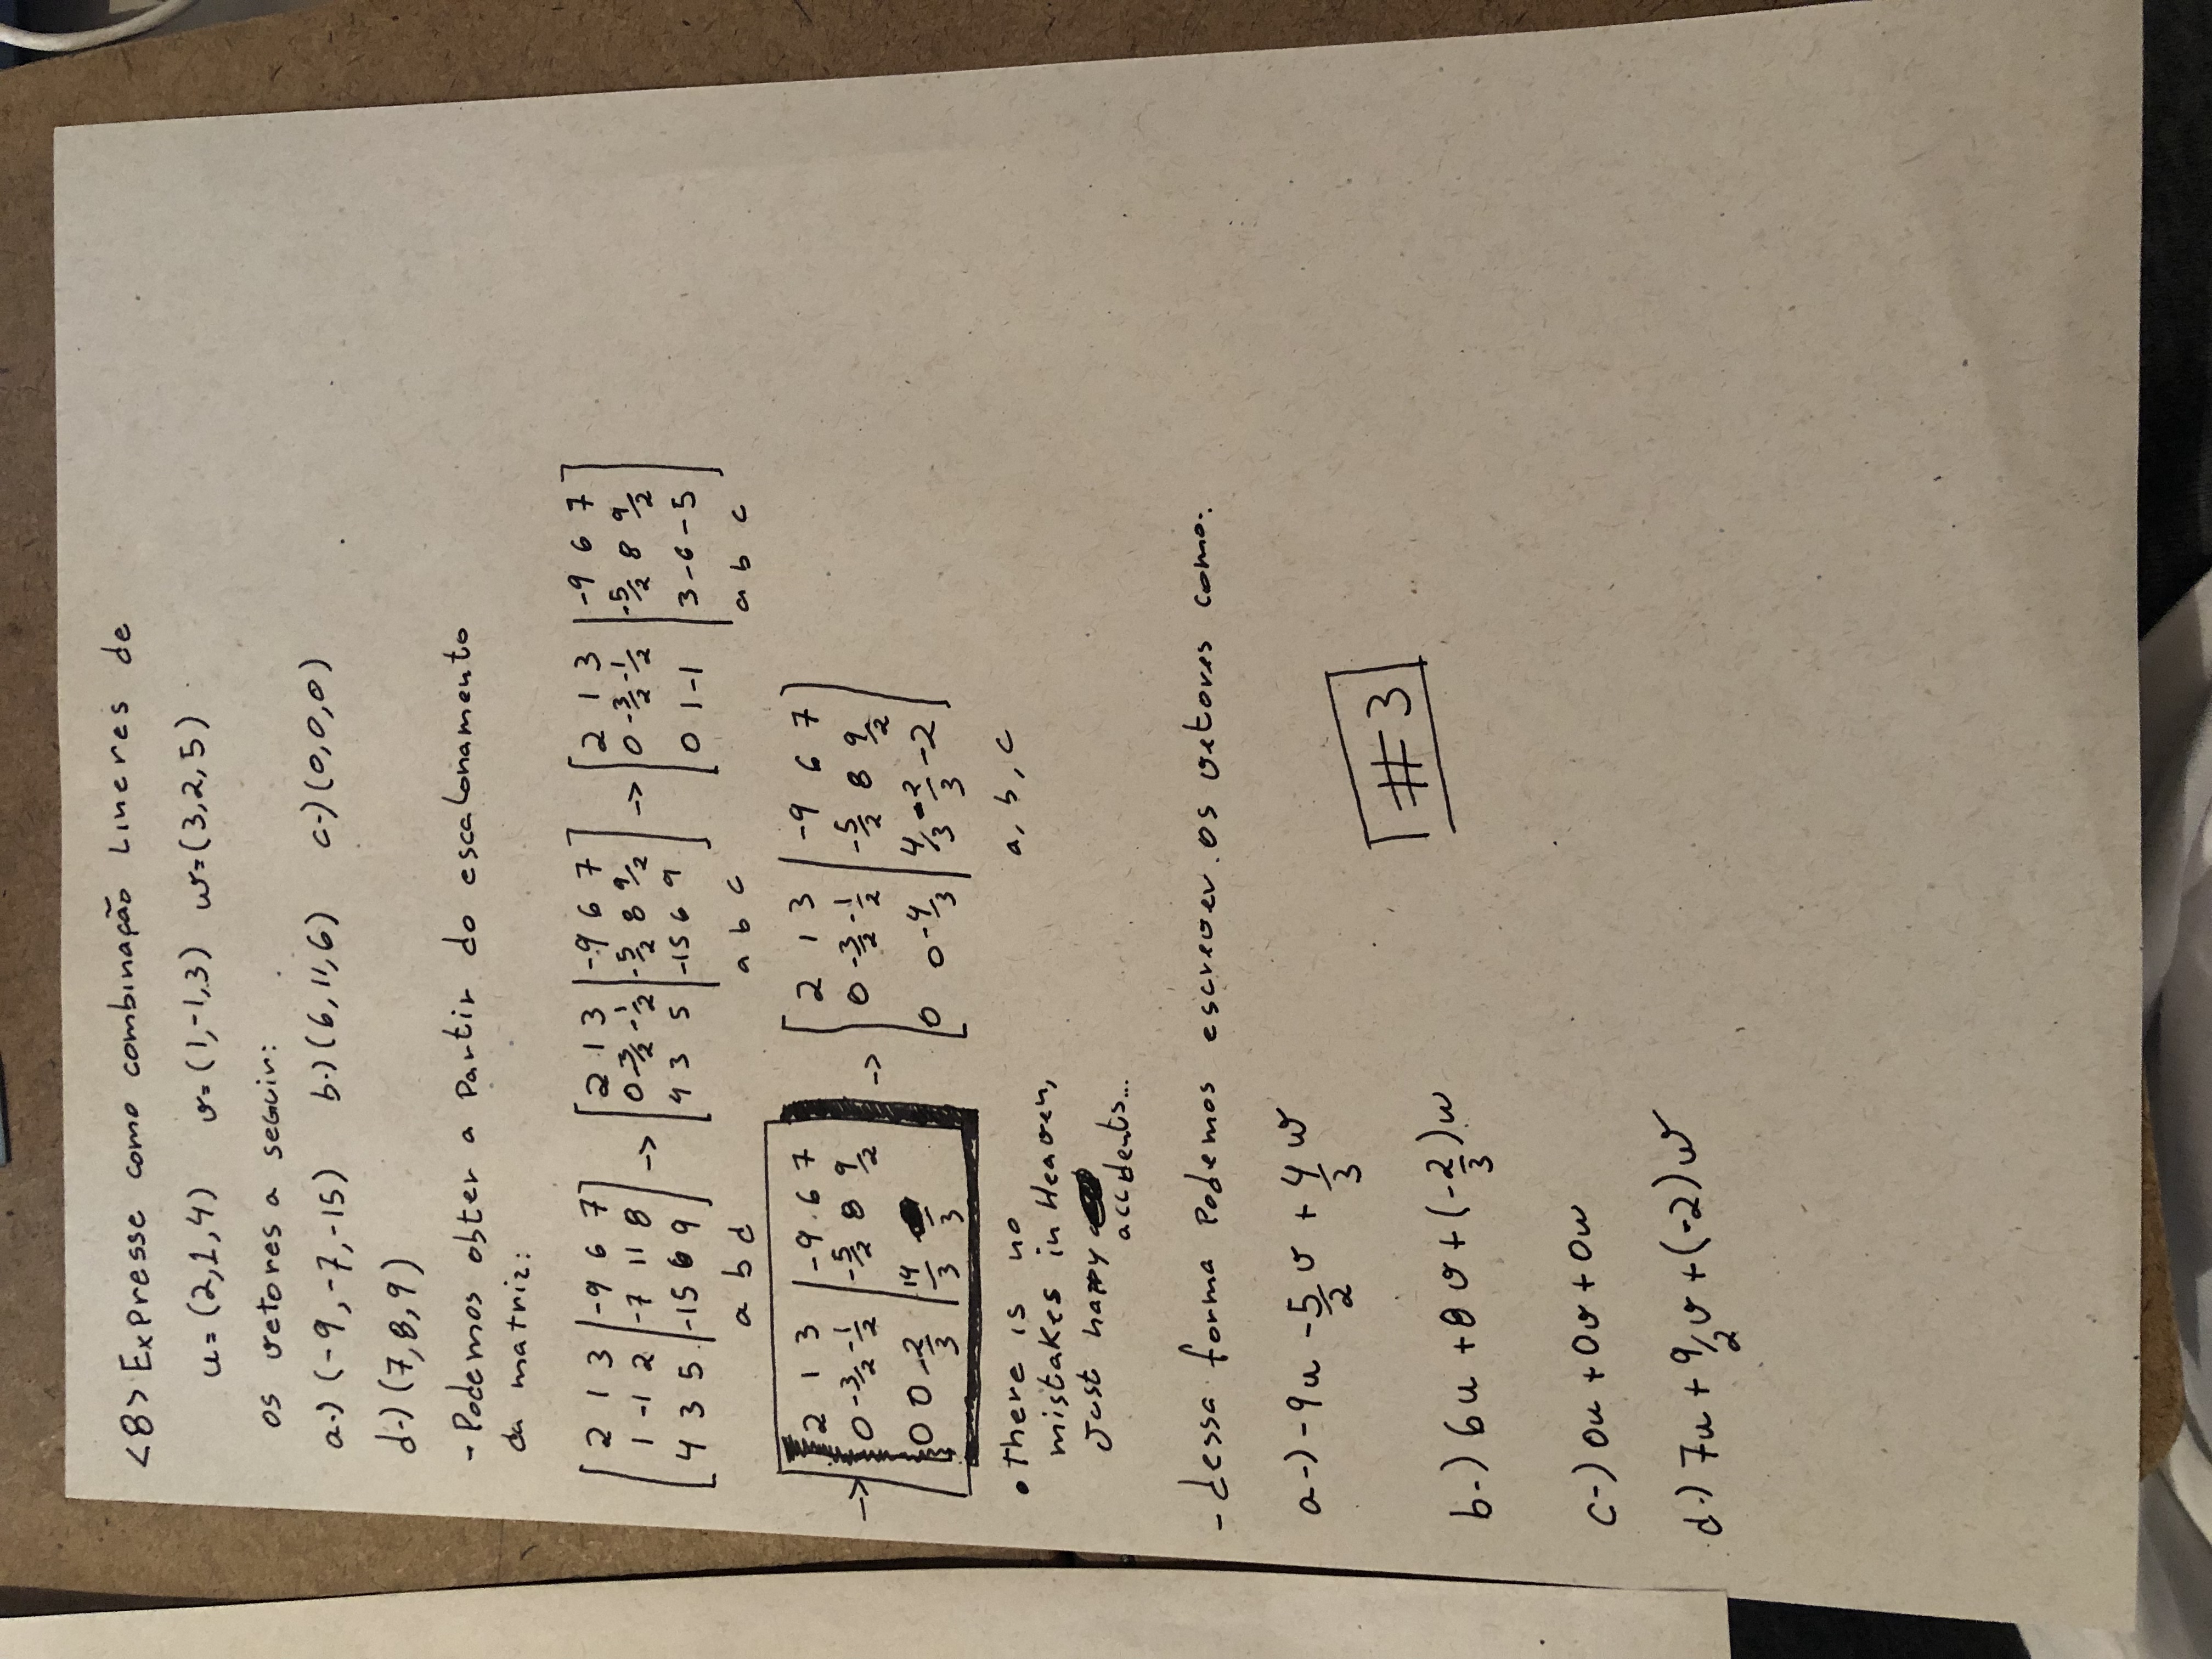 <8> Expresse como combinação Lineres de
u=(2,1,4) v=(1,-1,3) w=(3,2,5)
os vetores a seguir:
a-) (-9,-7,-15) b-) (6,11,6) c-) (0,0,0)
d-) (7,8,9)
- Podemos obter a partir do escalonamento
da matriz:
[2 1 3 | -9 6 7] [2 1 3 | -9 6 7] [2 1 3 | -9 6 7]
[1 -1 2 | -7 11 8] -> [0 -3/2 -1/2 | -5/2 8 9/2] -> [0 -3/2 -1/2 | -5/2 8 9/2]
[4 3 5 | -15 6 9] [4 3 5 | -15 6 9] [0 1 -1 | 3 -6 -5]
a b d a b c a b c
2 1 3 | -9 6 7 [2 1 3 | -9 6 7]
-> 0 -3/2 -1/2 | -5/2 8 9/2 -> [0 -3/2 -1/2 | -5/2 8 9/2]
0 0 -2/3 | 14/3 /3 [0 0 -4/3 | 4/3 -2/3 -2]
a, b, c
• there is no
mistakes in Heaven,
Just happy
accidents...
- dessa forma Podemos escrever os vetores como:
a-) -9u -5/2 v + 4/3 w
#3
b-) 6u +8v + (-2/3)w
c-) 0u + 0v + 0w
d-) 7u + 9/2 v + (-2)w